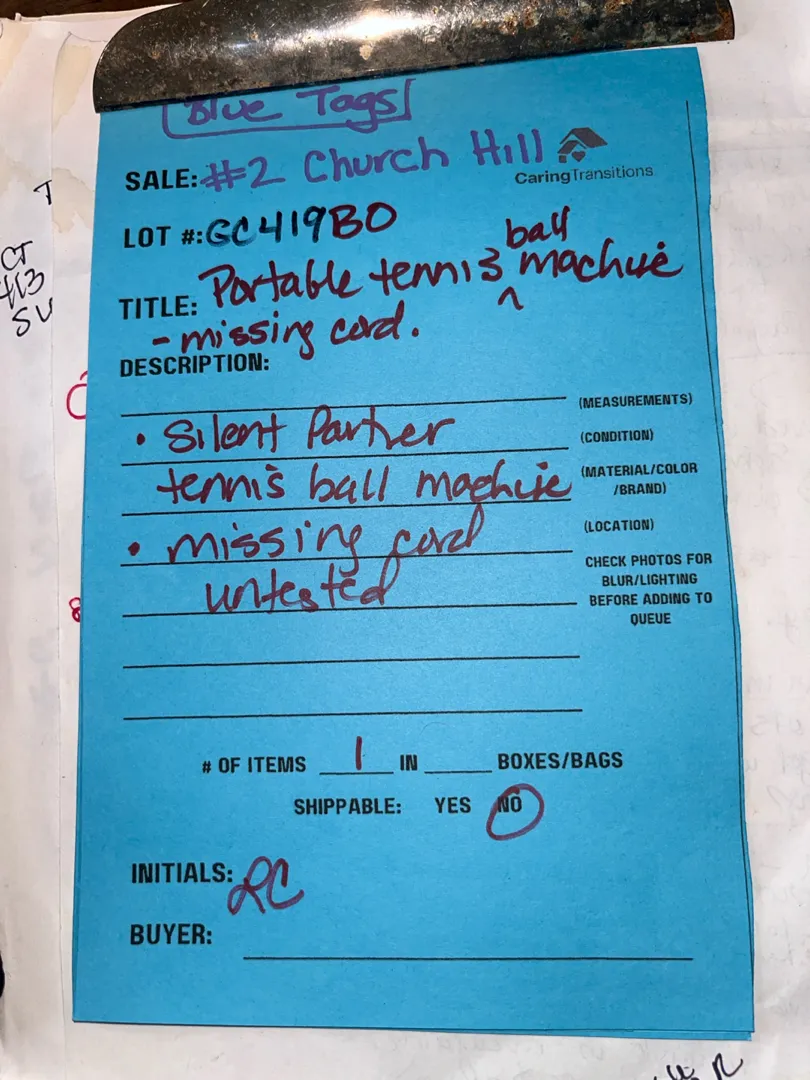 Blue Tags
SALE: #2 Church Hill
CaringTransitions
LOT #: GC419BO
ball
TITLE: Portable tennis ^ machine
- missing cord.
DESCRIPTION:
(MEASUREMENTS)
• Silent Partner
(CONDITION)
tennis ball machine
(MATERIAL/COLOR
/BRAND)
• missing cord
(LOCATION)
untested
CHECK PHOTOS FOR
BLUR/LIGHTING
BEFORE ADDING TO
QUEUE
# OF ITEMS 1 IN BOXES/BAGS
SHIPPABLE: YES NO
INITIALS: RC
BUYER: